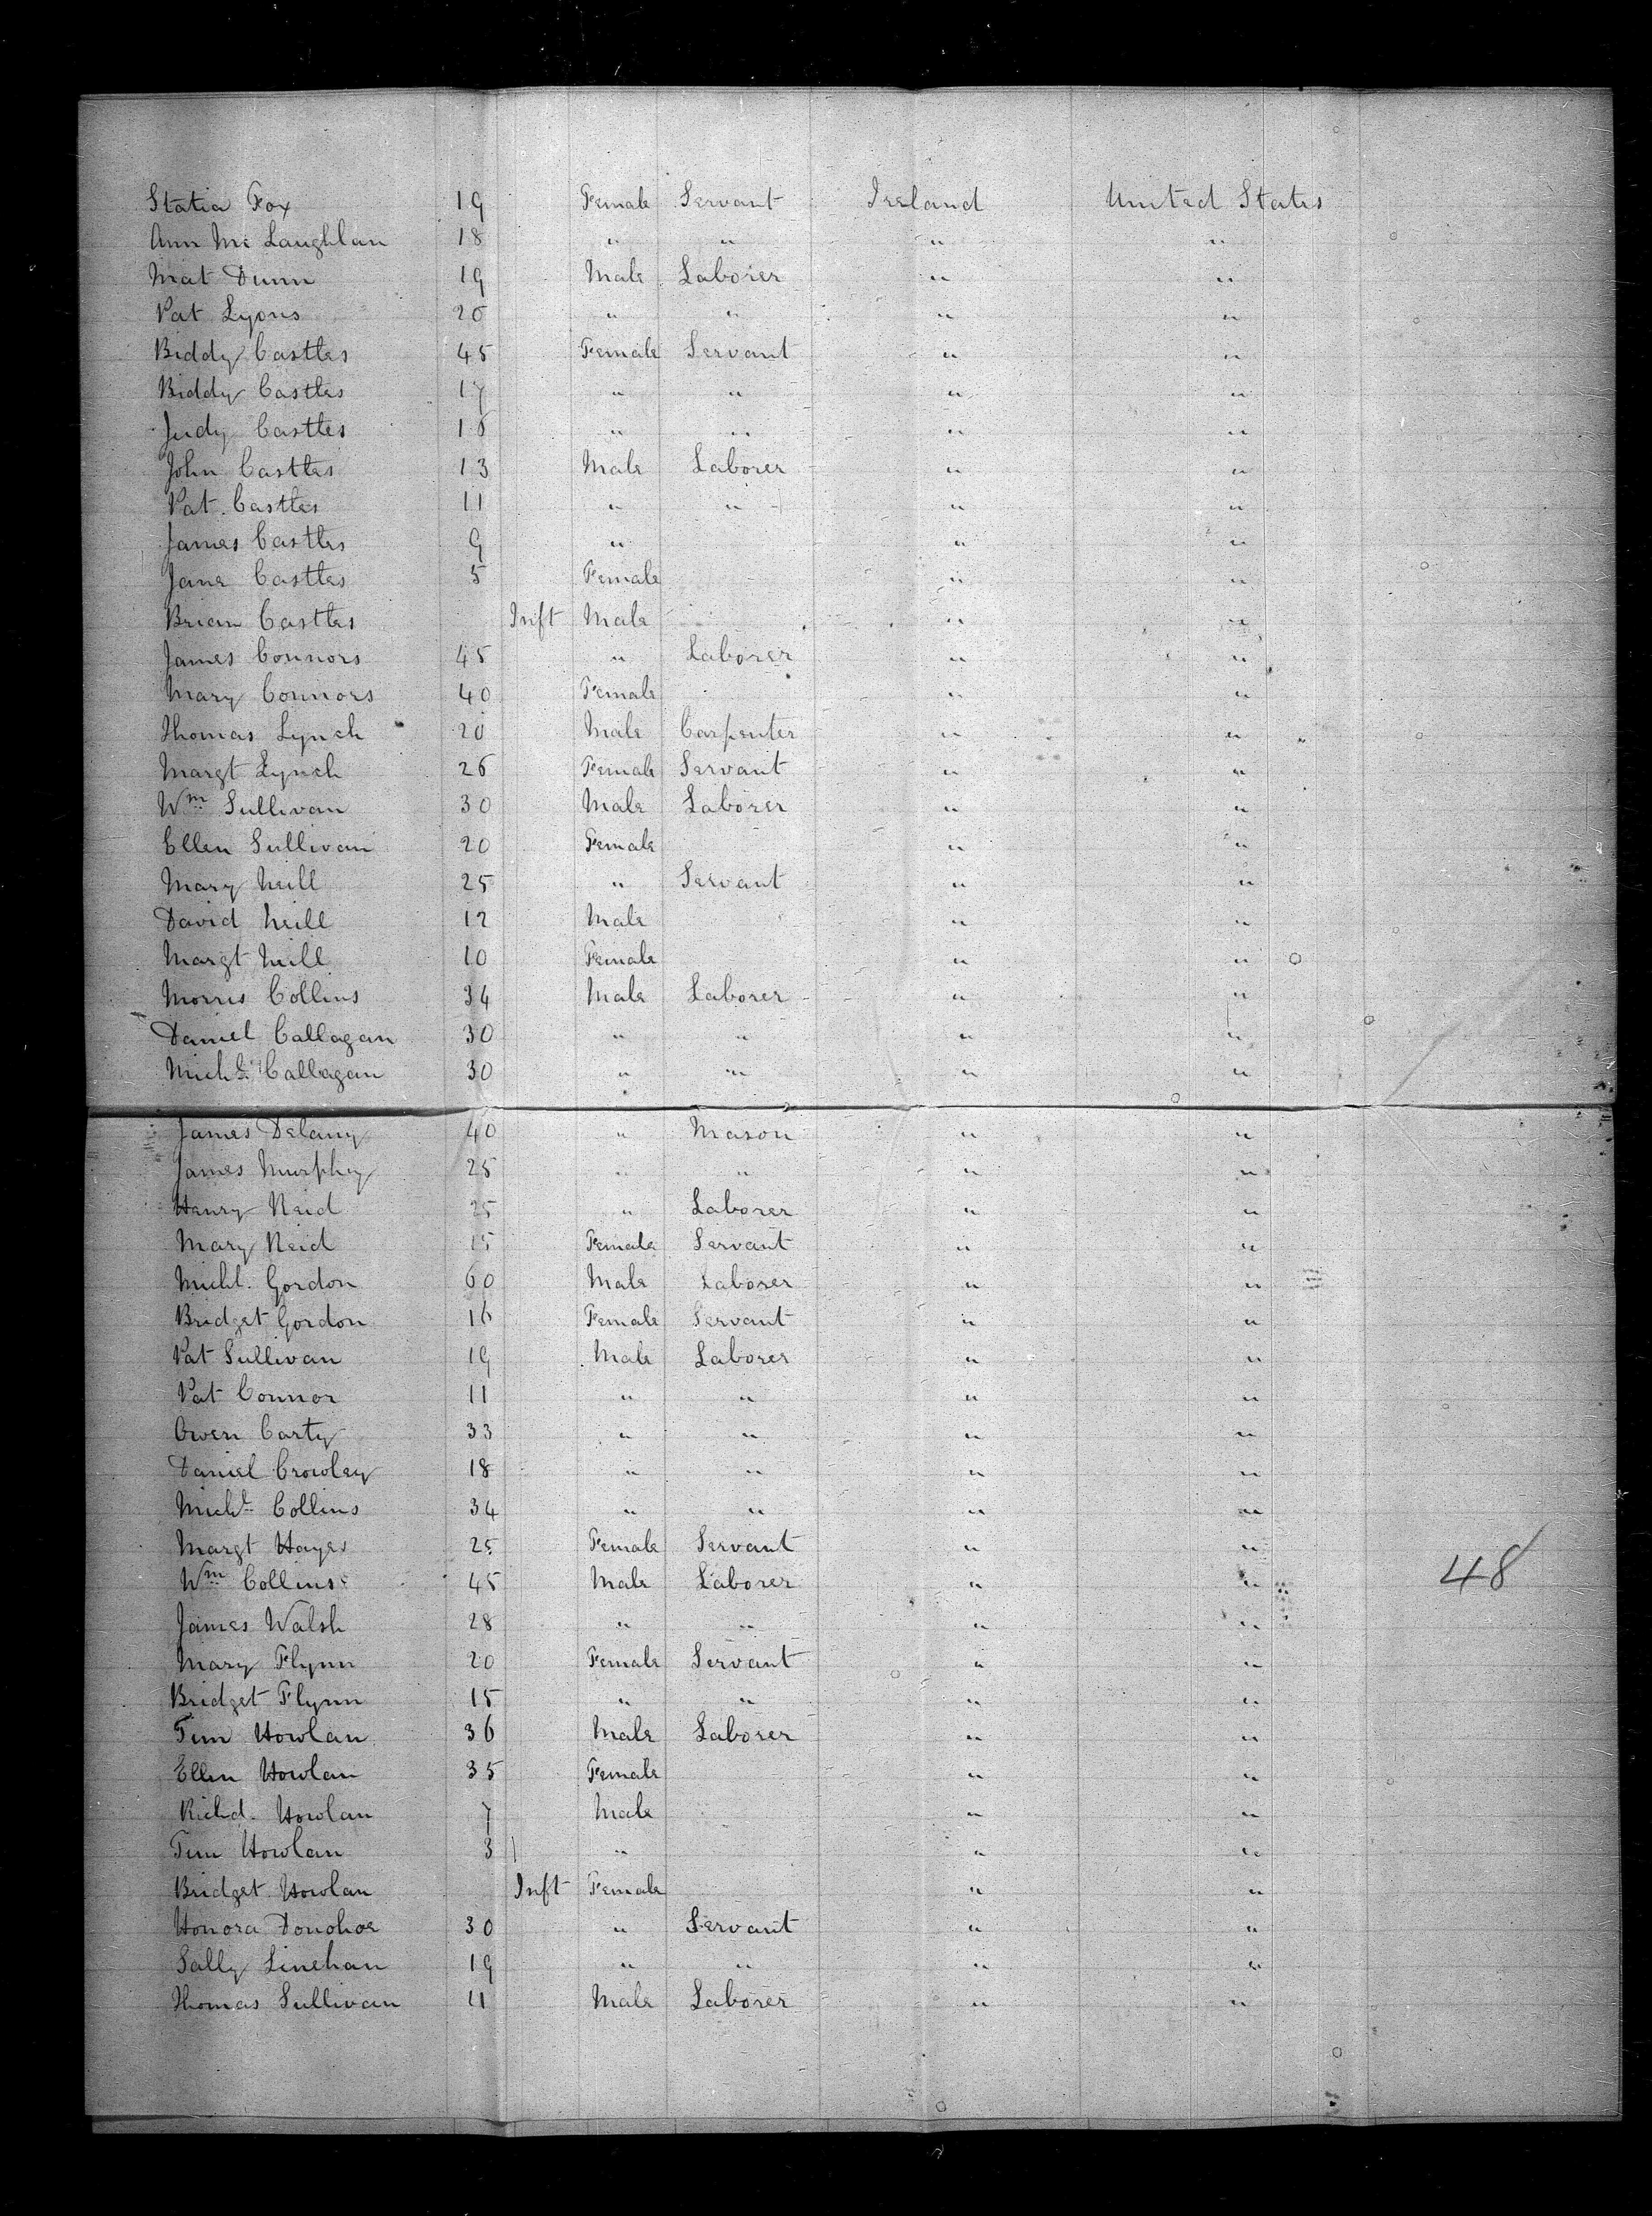 Statia Fox 19 Female Servant Ireland United States
Ann Mc Laughlan 18 " " " "
Mat Dunn 19 Male Laborer " "
Pat Lyons 20 " " " "
Biddy Castles 45 Female Servant " "
Biddy Castles 17 " " " "
Judy Castles 16 " " " "
John Castles 13 Male Laborer " "
Pat. Castles 11 " " " "
James Castles 9 " " "
Jane Castles 5 Female " "
Brian Castles Inft Male " "
James Connors 45 " Laborer " "
Mary Connors 40 Female " "
Thomas Lynch 20 Male Carpenter " "
Margt Lynch 26 Female Servant " "
Wm Sullivan 30 Male Laborer " "
Ellen Sullivan 20 Female " "
Mary Neill 25 " Servant " "
David Neill 12 Male " "
Margt Neill 10 Female " "
Morris Collins 34 Male Laborer " "
Daniel Callagan 30 " " " "
Michl. Callagan 30 " " " "
James Delany 40 " Mason " "
James Murphy 25 " " " "
Henry Reid 25 " Laborer " "
Mary Reid 15 Female Servant " "
Michl. Gordon 60 Male Laborer " "
Bridget Gordon 16 Female Servant " "
Pat Sullivan 19 Male Laborer " "
Pat Connor 11 " " " "
Owen Carty 33 " " " "
Daniel Crowley 18 " " " "
Michl. Collins 34 " " " "
Margt Hayes 25 Female Servant " "
Wm Collins 45 Male Laborer " " 48
James Walsh 28 " " " "
Mary Flynn 20 Female Servant " "
Bridget Flynn 15 " " " "
Tim Howlan 36 Male Laborer " "
Ellen Howlan 35 Female " "
Richd. Howlan 7 Male " "
Tim Howlan 3 " " "
Bridget Howlan Inft Female " "
Honora Donohoe 30 " Servant " "
Sally Linehan 19 " " " "
Thomas Sullivan 11 Male Laborer " "